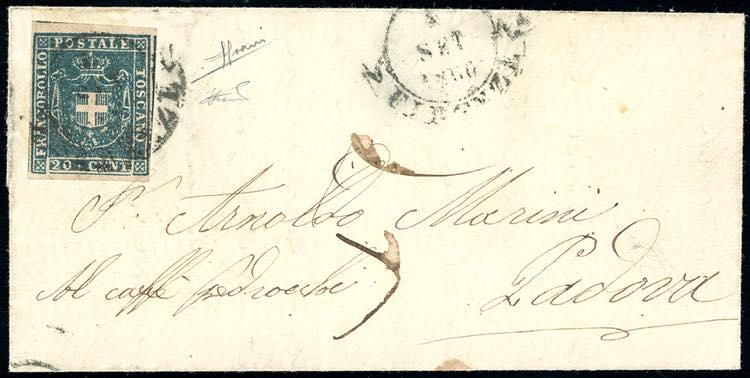 FRANCOBOLLO
POSTALE
TOSCANO
20 CENT
SET
1860
FIRENZE
Sr. Arnoldo Marini
Al caffè Pedrocchi
Padova
5